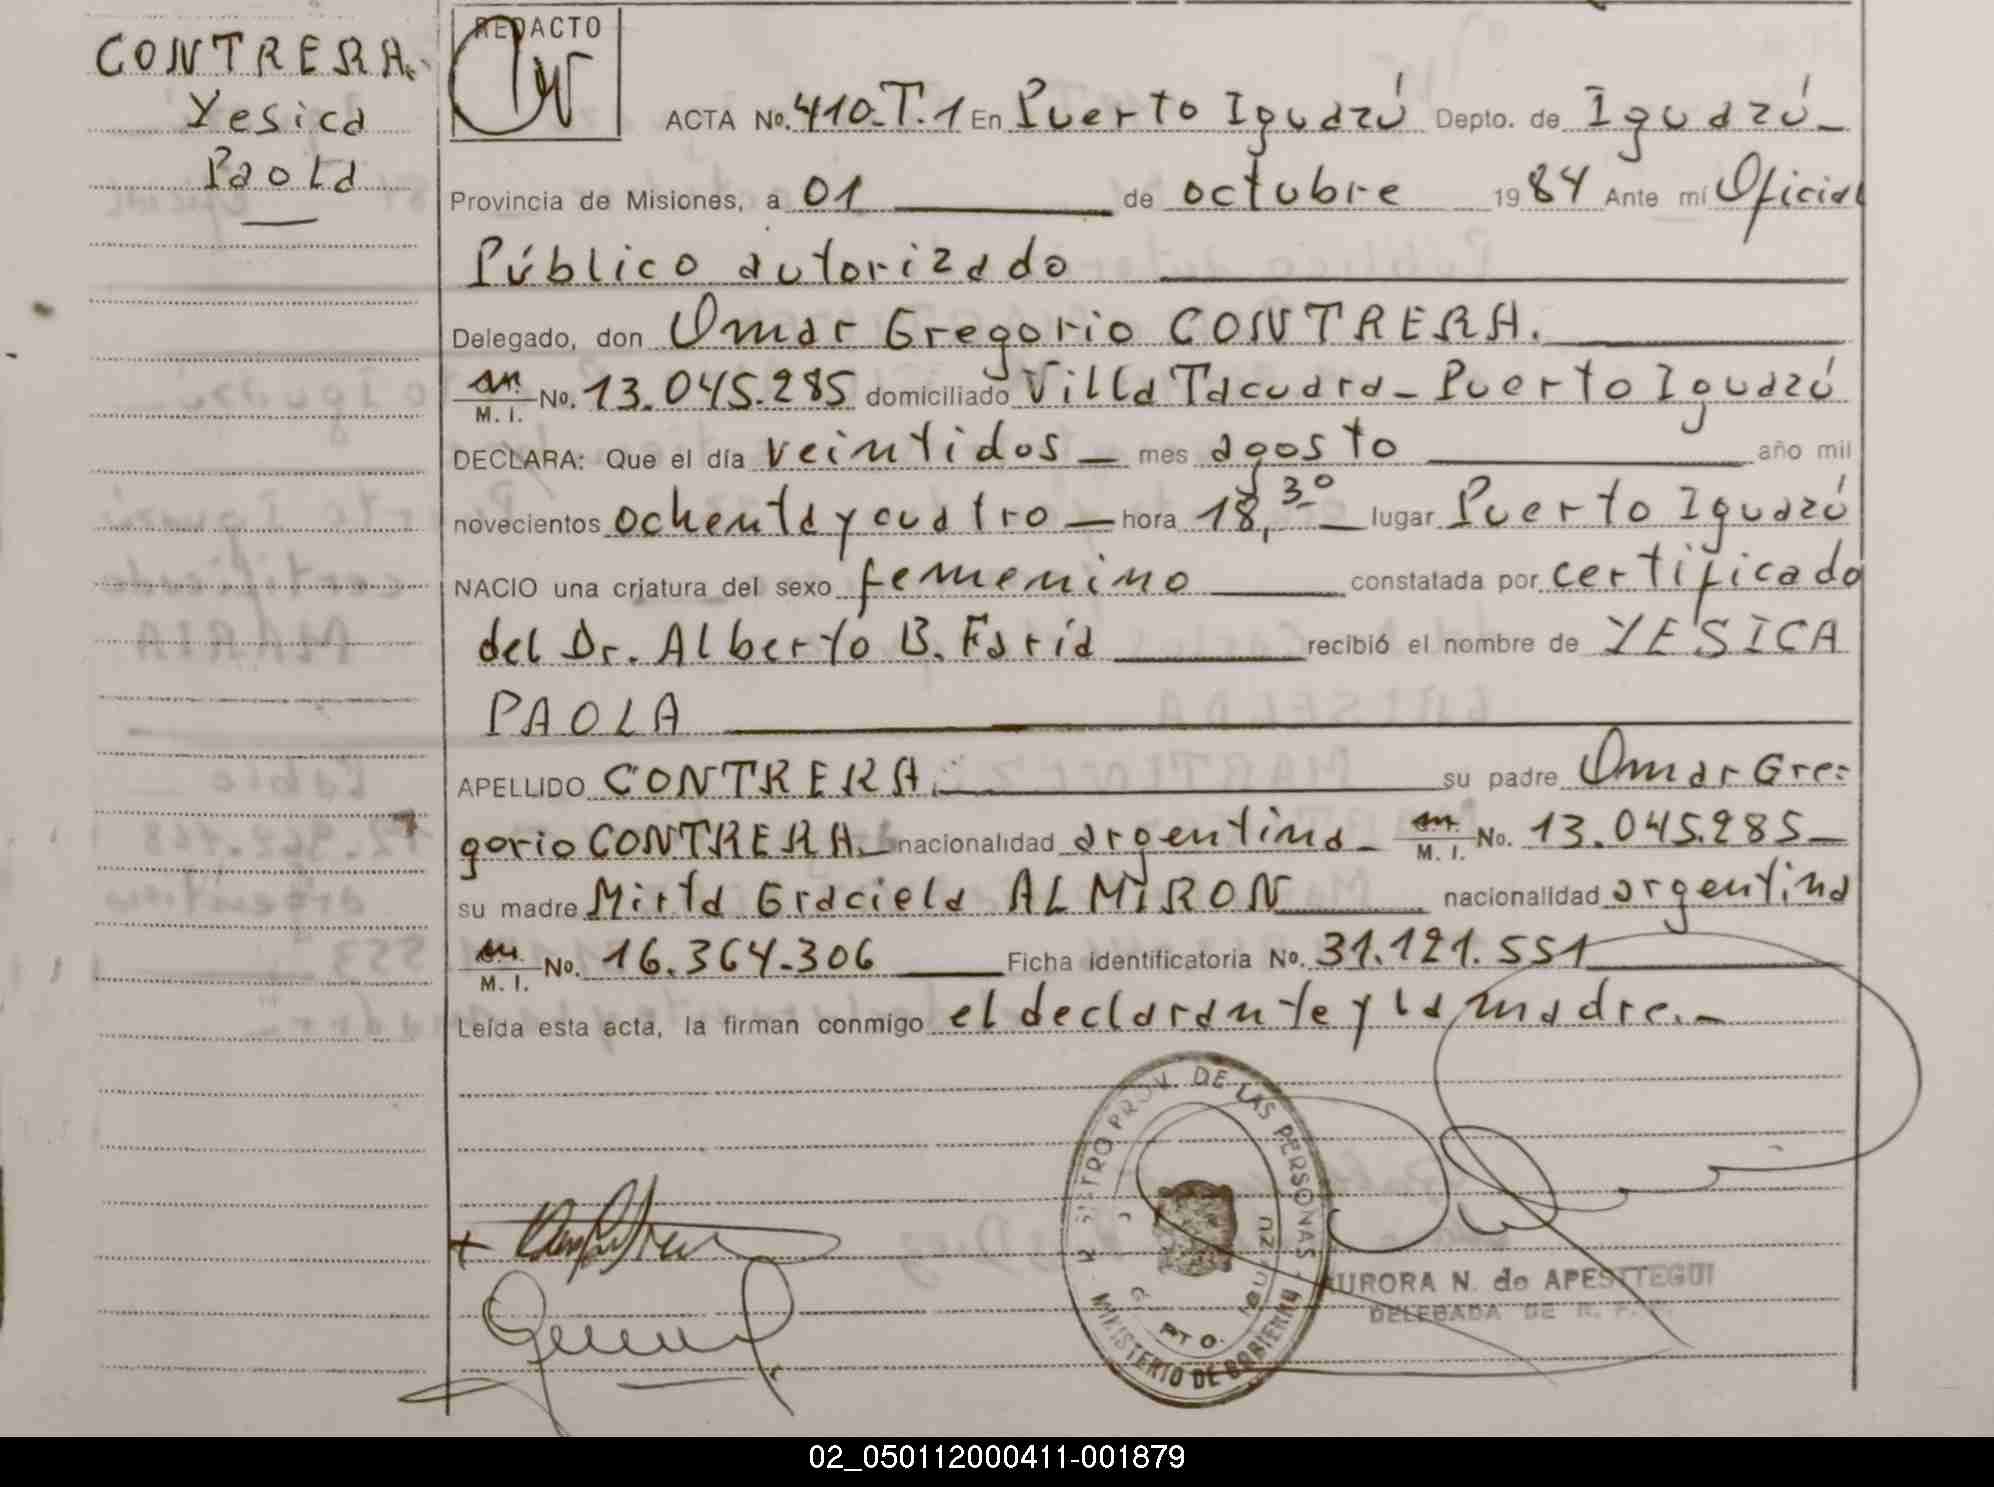 CONTRERA.
Yesica
Paola
REDACTO
ACTA No. 410.T.1 En Puerto Iguazú Depto. de Iguazú
Provincia de Misiones, a 01 de octubre 1984 Ante mí Oficial
Público autorizado
Delegado, don Omar Gregorio CONTRERA.
M. I. No. 13.045.285 domiciliado Villa Tacuara - Puerto Iguazú
DECLARA: Que el día veintidos mes agosto año mil
novecientos ochenta y cuatro hora 18,30 lugar Puerto Iguazú
NACIO una criatura del sexo femenino constatada por certificado
del Dr. Alberto B. Faría recibió el nombre de YESICA
PAOLA
APELLIDO CONTRERA. su padre Omar Gre=
gorio CONTRERA. nacionalidad argentina M. I. No. 13.045.285
su madre Mirta Graciela ALMIRON nacionalidad argentina
M. I. No. 16.364.306 Ficha identificatoria No. 31.121.551
Leída esta acta, la firman conmigo el declarante y la madre.
PROV. DE LAS PERSONAS
PTO.
MINISTERIO DE GOBIERNO
AURORA N. de APESTTEGUI
DELEGADA DE R. P.
02_050112000411-001879